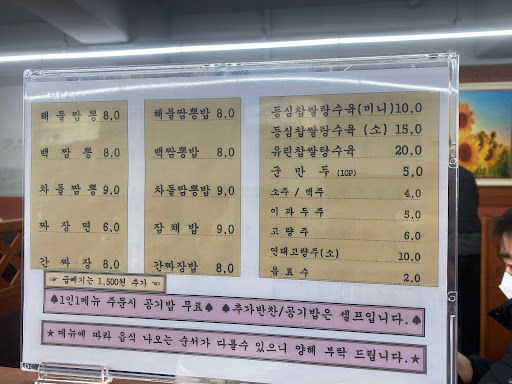 해물짬뽕 8,0
백짬뽕 8,0
차돌짬뽕 9,0
짜장면 6,0
간짜장 8,0
해물짬뽕밥 8,0
백짬뽕밥 8,0
차돌짬뽕밥 9,0
잡채밥 9,0
간짜장밥 8,0
등심찹쌀탕수육(미니) 10,0
등심찹쌀탕수육(소) 15,0
유린찹쌀탕수육 20,0
군만두(10P) 5,0
소주/맥주 4,0
이과두주 5,0
고량주 6,0
연태고량주(소) 10,0
음료수 2,0
☜ 곱빼기는 1,500원 추가 ☞
♠1인1메뉴 주문시 공기밥 무료♠ ♠추가반찬/공기밥은 셀프입니다.♠
★메뉴에 따라 음식 나오는 순서가 다를수 있으니 양해 부탁 드립니다.★